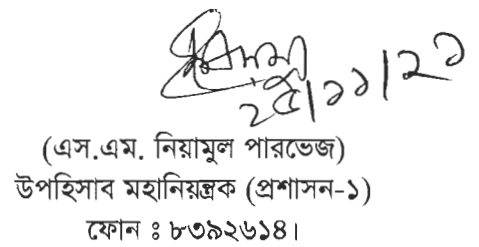 ২৫/১১/২১
(এস.এম. নিয়ামুল পারভেজ)
উপহিসাব মহানিয়ন্ত্রক (প্রশাসন-১)
ফোন ঃ ৮৩৯২৬১৪।